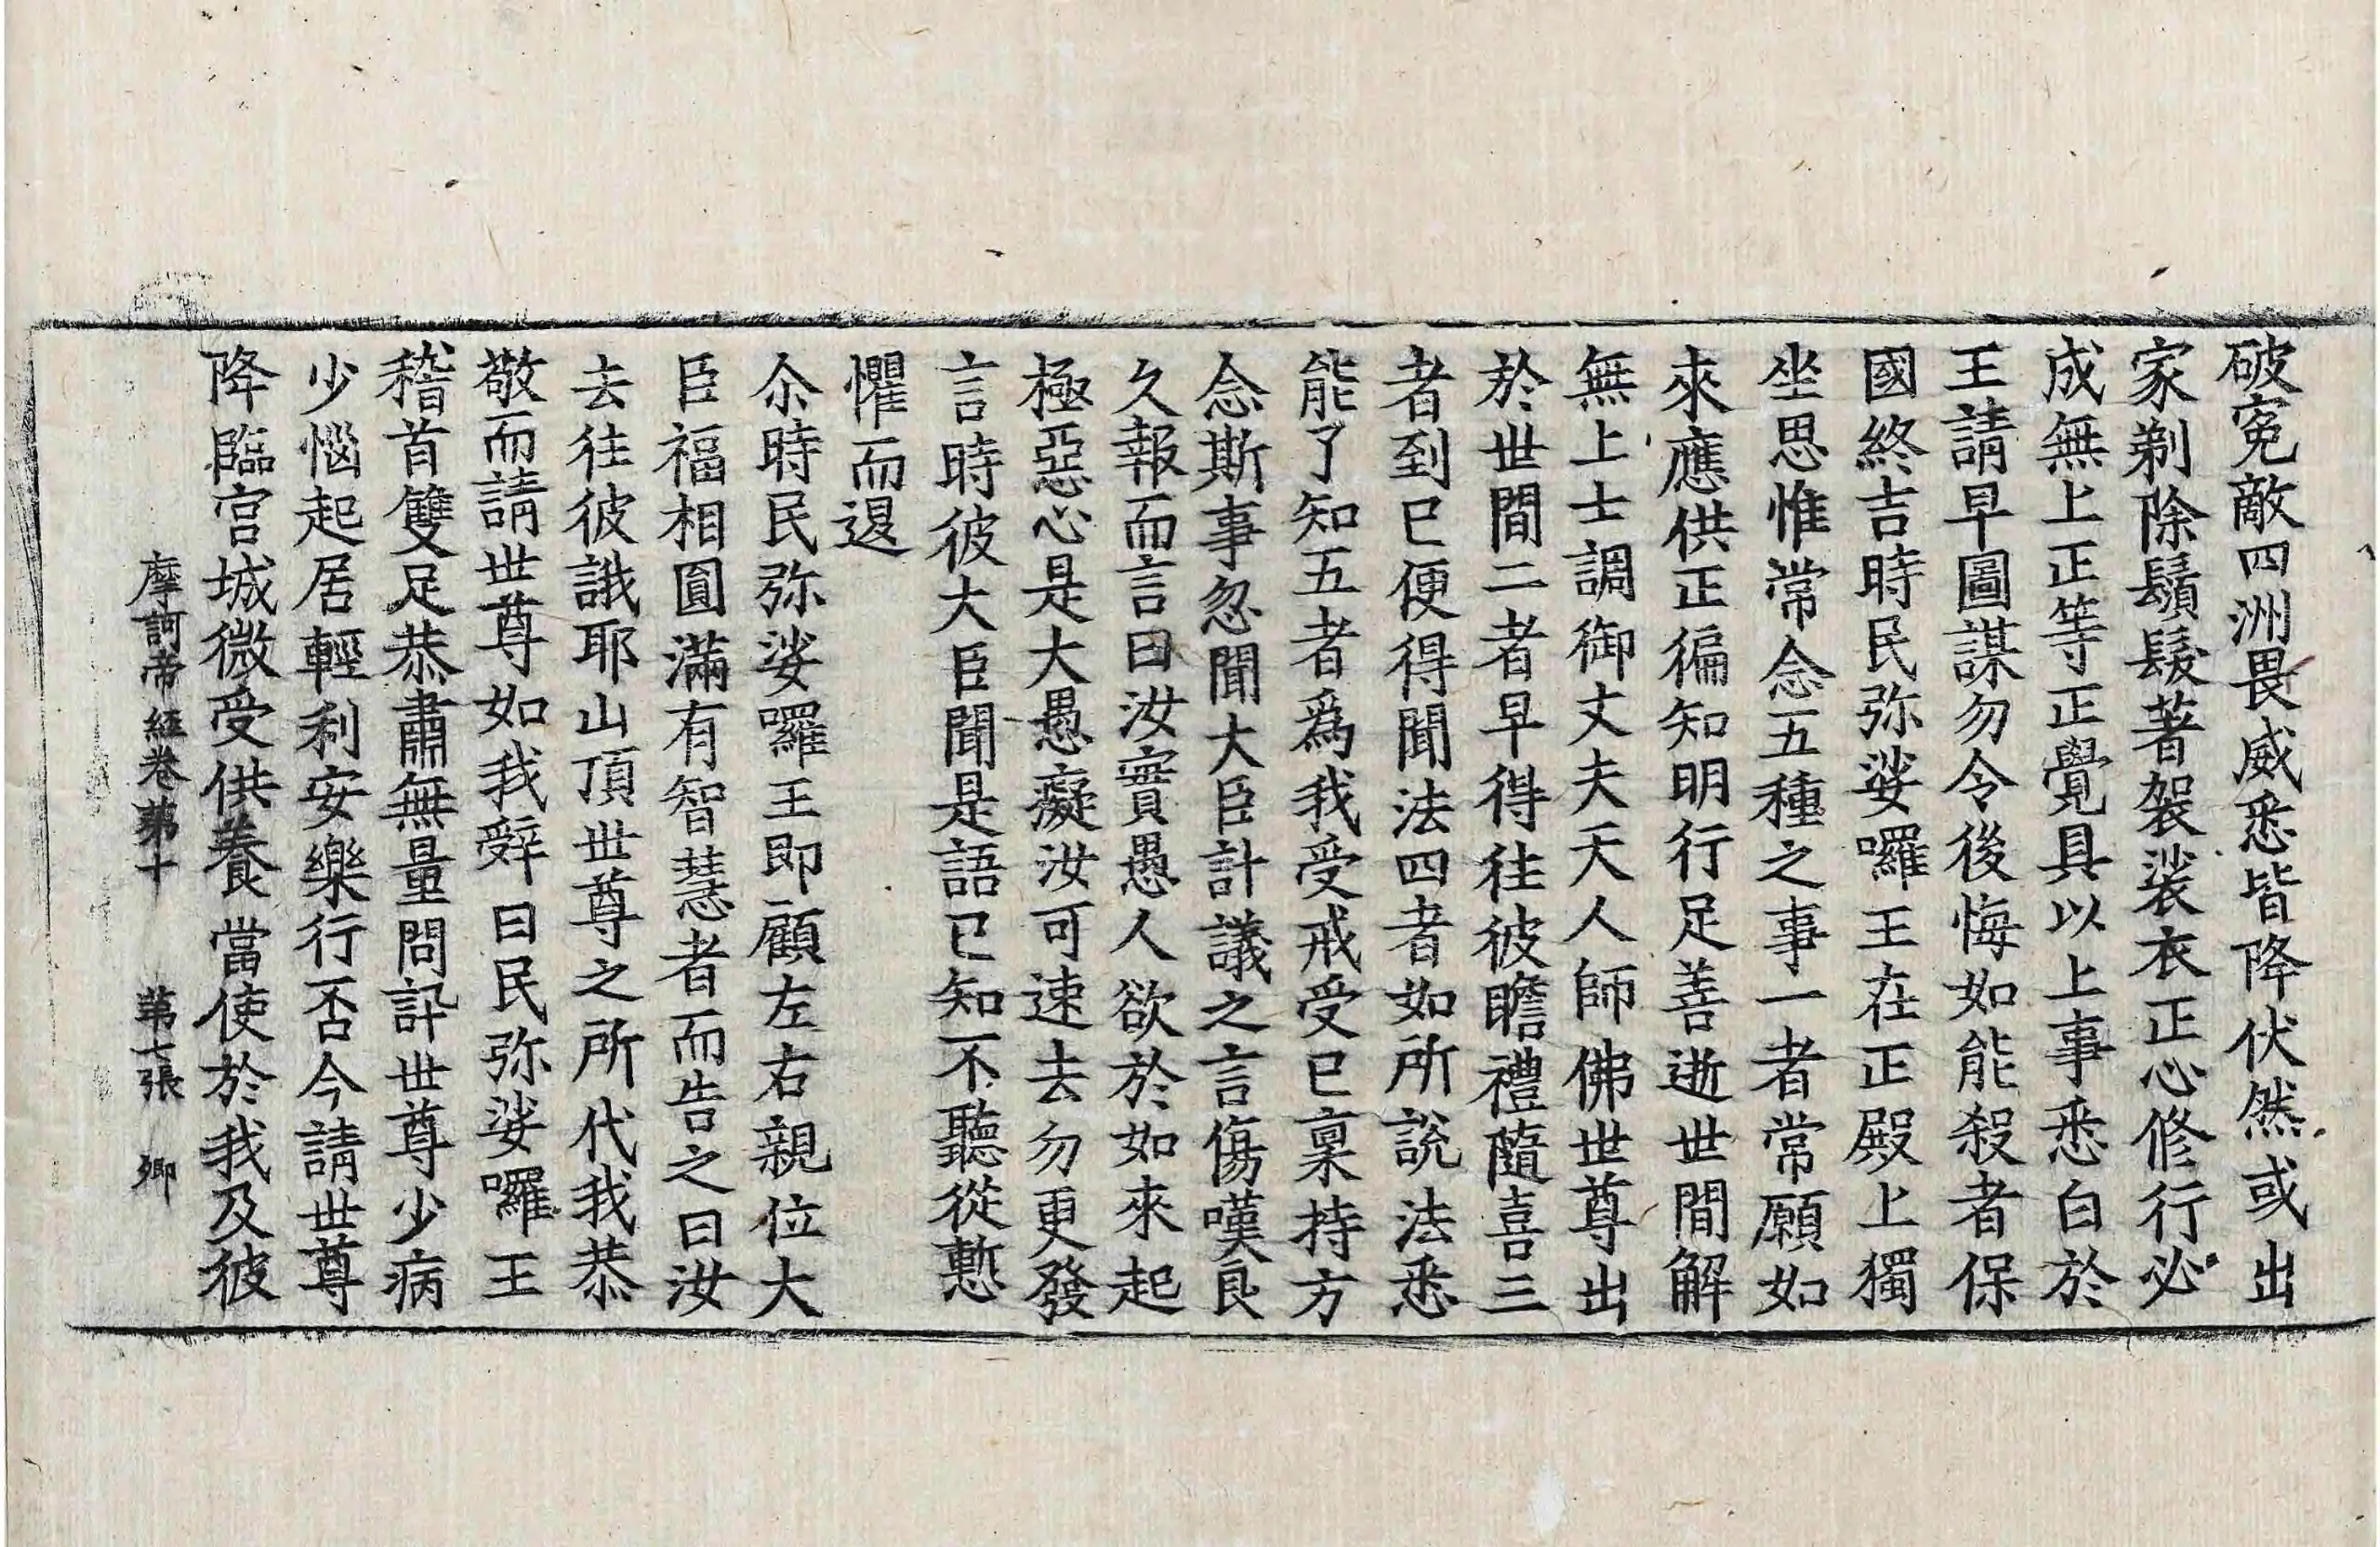 破寃敵四洲畏威悉皆降伏然或出
家剃除鬚髮著袈裟衣正心修行必
成無上正等正覺具以上事悉白於
王請早圖謀勿令後悔如能殺者保
國終吉時民弥娑囉王在正殿上獨
坐思惟常念五種之事一者常願如
來應供正徧知明行足善逝世間解
無上士調御丈夫天人師佛世尊出
於世間二者早得往彼瞻禮隨喜三
者到已便得聞法四者如所說法悉
能了知五者爲我受戒受已稟持方
念斯事忽聞大臣計議之言傷嘆良
久報而言曰汝實愚人欲於如來起
極惡心是大愚癡汝可速去勿更發
言時彼大臣聞是語已知不聽從慙
懼而退
尒時民弥娑囉王即顧左右親位大
臣福相圓滿有智慧者而告之曰汝
去往彼誐耶山頂世尊之所代我恭
敬而請世尊如我辝曰民弥娑囉王
稽首雙足恭肅無量問訊世尊少病
少惱起居輕利安樂行否今請世尊
降臨宮城微受供養當使於我及彼
摩訶帝經卷苐十 苐七張 卿